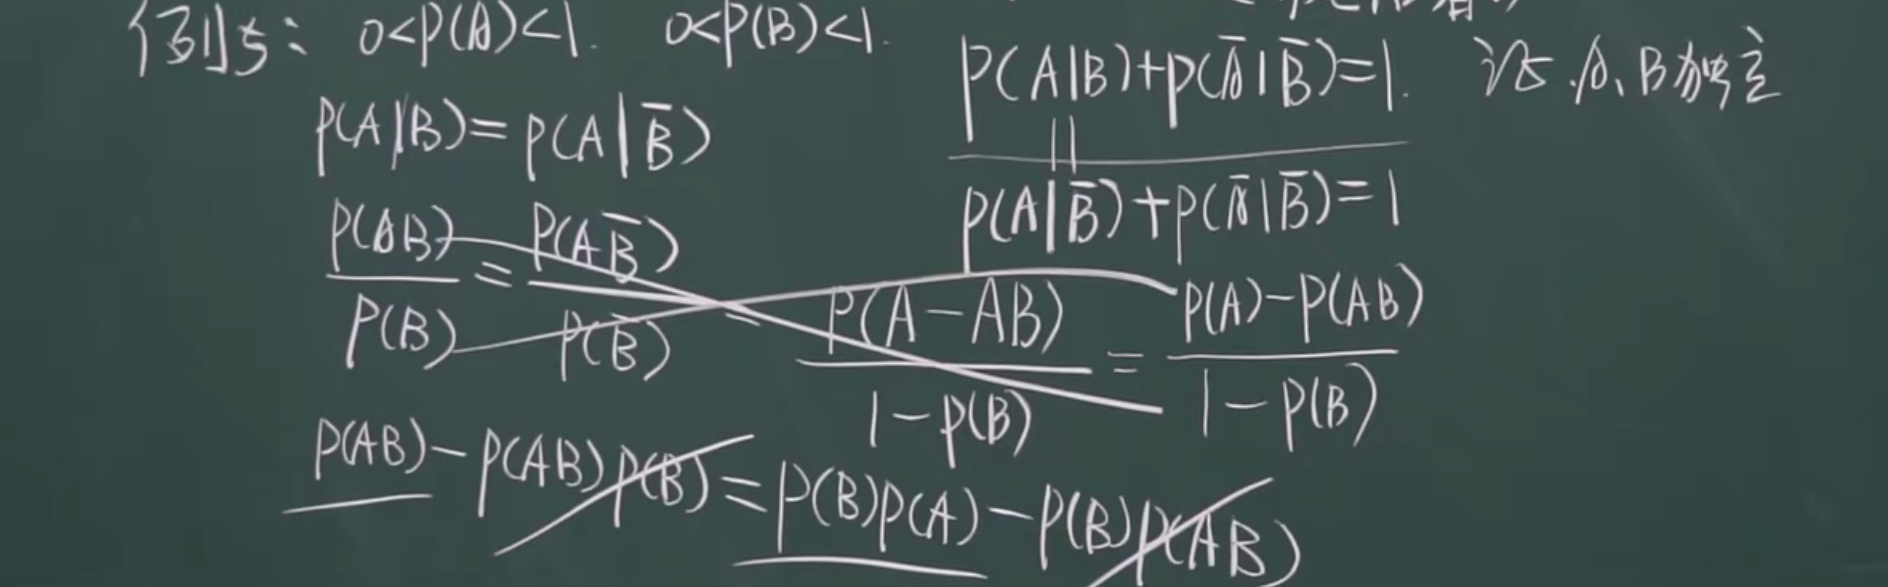 例5: 0<P(A)<1. 0<P(B)<1.
P(A|B)+P(Ā|B̄)=1. 证.A、B独立
P(A|B)=P(A|B̄)
||
P(A|B̄)+P(Ā|B̄)=1
P(AB)/P(B) = P(AB̄)/P(B̄) = P(A-AB)/1-P(B) = P(A)-P(AB)/1-P(B)
P(AB)-P(AB)P(B)=P(B)P(A)-P(B)P(AB)